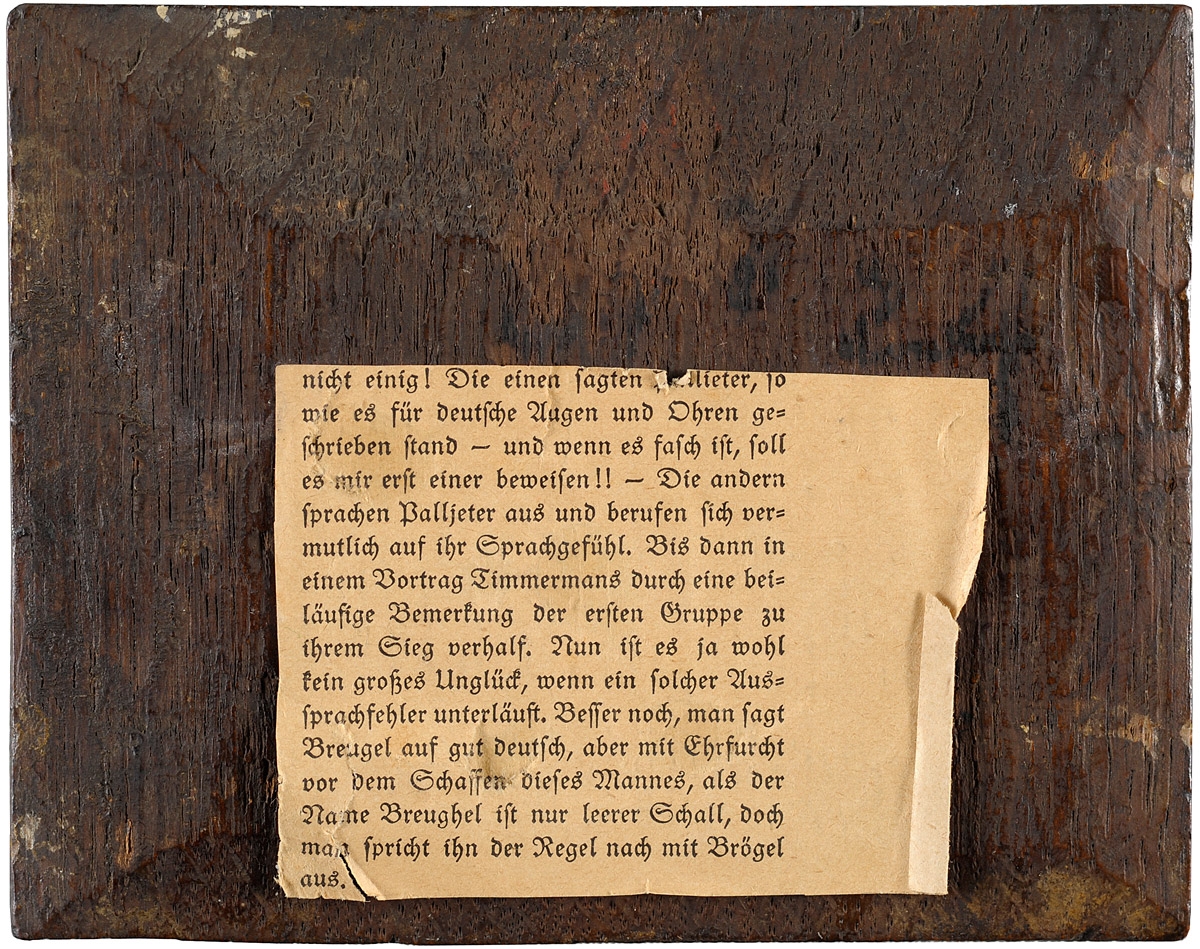 nicht einig! Die einen sagten Pallieter, so
wie es für deutsche Augen und Ohren ge=
schrieben stand — und wenn es fasch ist, soll
es mir erst einer beweisen!! — Die andern
sprachen Palljeter aus und berufen sich ver=
mutlich auf ihr Sprachgefühl. Bis dann in
einem Vortrag Timmermans durch eine bei=
läufige Bemerkung der ersten Gruppe zu
ihrem Sieg verhalf. Nun ist es ja wohl
kein großes Unglück, wenn ein solcher Aus=
sprachfehler unterläuft. Besser noch, man sagt
Breugel auf gut deutsch, aber mit Ehrfurcht
vor dem Schaffen dieses Mannes, als der
Name Breughel ist nur leerer Schall, doch
man spricht ihn der Regel nach mit Brögel
aus.